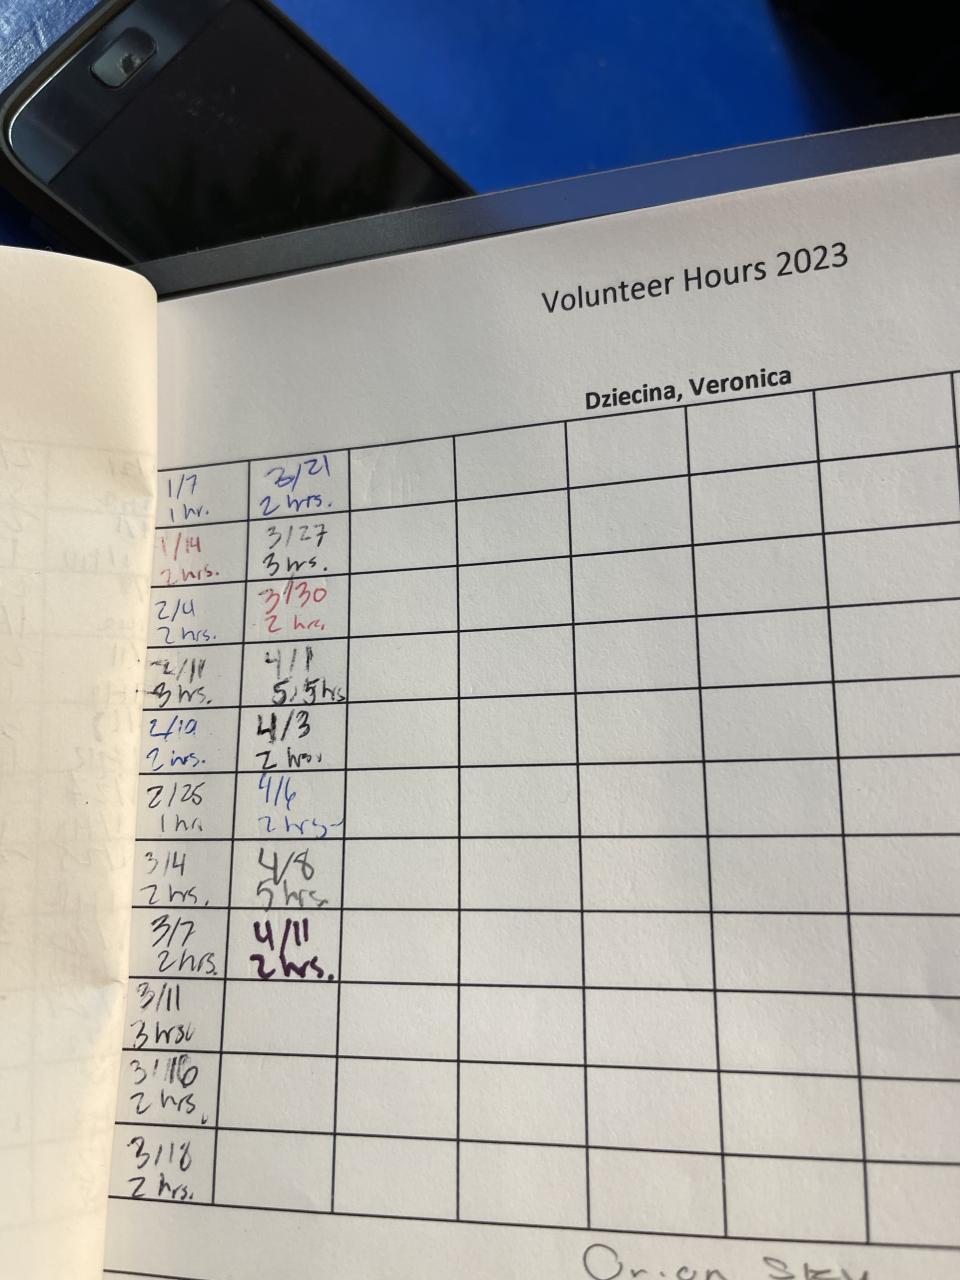 Volunteer Hours 2023
Dziecina, Veronica
1/7
1 hr.
1/14
2 hrs.
2/4
2 hrs.
2/11
3 hrs.
2/19
2 hrs.
2/25
1 hr.
3/4
2 hrs.
3/7
2 hrs.
3/11
3 hrs.
3/16
2 hrs.
3/18
2 hrs.
3/21
2 hrs.
3/27
3 hrs.
3/30
2 hrs.
4/1
5.5 hrs
4/3
2 hrs.
4/6
2 hrs.
4/8
5 hrs.
4/11
2 hrs.
Orion Sky